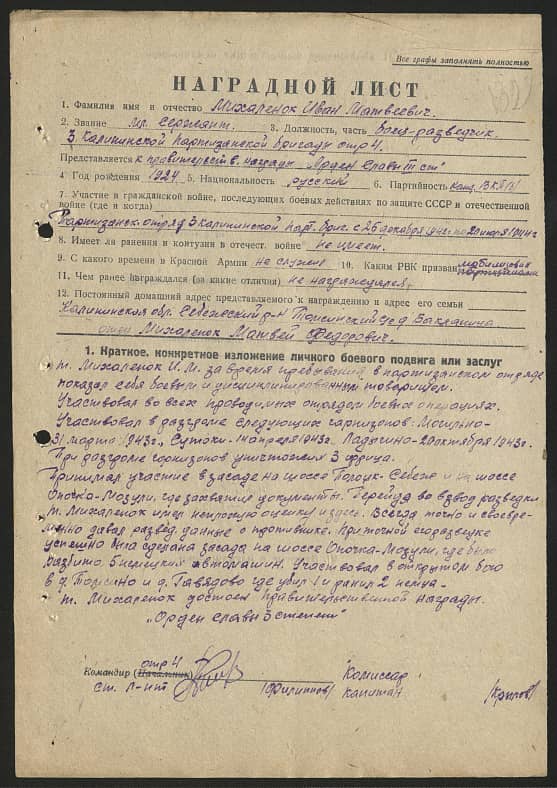 Все графы заполнять полностью
НАГРАДНОЙ ЛИСТ
1. Фамилия имя и отчество Михаленок Иван Матвеевич.
2. Звание мл. сержант. 3. Должность, часть боец-разведчик.
3 Калининской партизанской бригады отр 4.
Представляется к правительств. награде "Орден Славы III ст"
4 Год рождения 1924 5. Национальность русский 6. Партийность канд. ВКП(б)
7. Участие в гражданской войне, последующих боевых действиях по защите СССР и отечественной
войне (где и когда)
Партизанск. отряд 3 Калининской парт. бриг. с 26 декабря 1942 г по 20 июля 1944 г
8. Имеет ли ранения и контузии в отечест. войне не имеет.
9. С какого времени в Красной Армии не служил 10. Каким РВК призван мобилизован партизанами
11. Чем ранее награждался (за какие отличия) не награждался
12. Постоянный домашний адрес представляемого к награждению и адрес его семьи
Калининская обл. Себежский р-н Томсинский с/с д Бакланица
отец Михаленок Матвей Федорович.
1. Краткое, конкретное изложение личного боевого подвига или заслуг
т. Михаленок И.М. за время пребывания в партизанском отряде
показал себя боевым и дисциплинированным товарищем.
Участвовал во всех проводимых отрядом боевых операциях.
Участвовал в разгроме следующих гарнизонов: Мосьлино-
31 марта 1943г., Сутоки-14 апреля 1943г. Ладыгино-20 октября 1943г.
При разгроме гарнизонов уничтожил 3 фрица.
Принимал участие в засаде на шоссе Полоцк-Себеж и на шоссе
Опочка-Мозули, где захватил документы. Перейдя во взвод разведки
т. Михаленок имел неплохую оценку и здесь. Всегда точно и своевре-
менно давал развед. данные о противнике. При точной его разведке
успешно была сделана засада на шоссе Опочка-Мозули, где было
разбито 5 немецких автомашин. Участвовал в открытом бою
в д. Томсино и д. Гавядово где убил 1 и ранил 2 немца.
т. Михаленок достоен правительственной награды.
"Орден славы 3 степени"
отр 4
Командир (Начальник)
ст. л-нт (Филиппов)
Комиссар
капитан (Крылов)